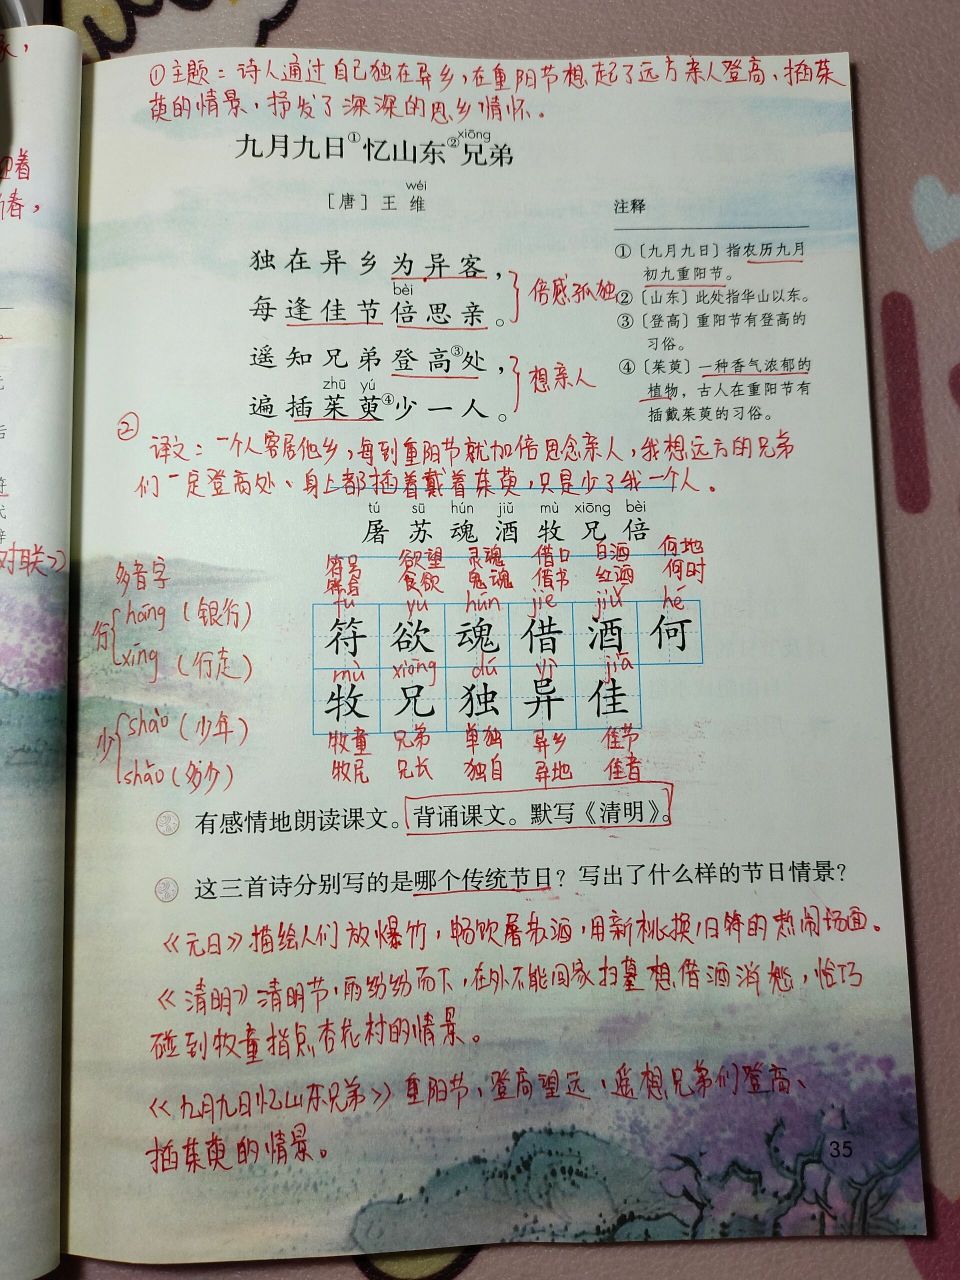 ①主题：诗人通过自己独在异乡，在重阳节想起了远方亲人登高、插茱
萸的情景，抒发了深深的思乡情怀。
xiōng
九月九日①忆山东②兄弟
wéi
［唐］王 维
独在异乡为异客，
bèi
每逢佳节倍思亲。
倍感孤独
遥知兄弟登高③处，
zhū yú
遍插茱萸④少一人。
想亲人
注释
①〔九月九日〕指农历九月
初九重阳节。
②〔山东〕此处指华山以东。
③〔登高〕重阳节有登高的
习俗。
④〔茱萸〕一种香气浓郁的
植物，古人在重阳节有
插戴茱萸的习俗。
②
译文：一个人客居他乡，每到重阳节就加倍思念亲人，我想远方的兄弟
们一定登高处、身上都插着戴着茱萸，只是少了我一个人。
tú sū hún jiǔ mù xiōng bèi
屠 苏 魂 酒 牧 兄 倍
符号 欲望 灵魂 借口 白酒 何地
食欲 鬼魂 借书 红酒 何时
fú yù hún jiè jiǔ hé
符 欲 魂 借 酒 何
mù xiōng dú yì jiā
牧 兄 独 异 佳
牧童 兄弟 单独 异乡 佳节
牧民 兄长 独自 异地 佳音
多音字
行 háng（银行）
xíng（行走）
少 shào（少年）
shǎo（多少）
有感情地朗读课文。背诵课文。默写《清明》。
这三首诗分别写的是哪个传统节日？写出了什么样的节日情景？
《元日》描绘人们放爆竹，畅饮屠苏酒，用新桃换旧符的热闹场面。
《清明》清明节，雨纷纷而下，在外不能回家扫墓想借酒消愁，恰巧
碰到牧童指点杏花村的情景。
《九月九日忆山东兄弟》重阳节、登高望远、遥想兄弟们登高、
插茱萸的情景。
35